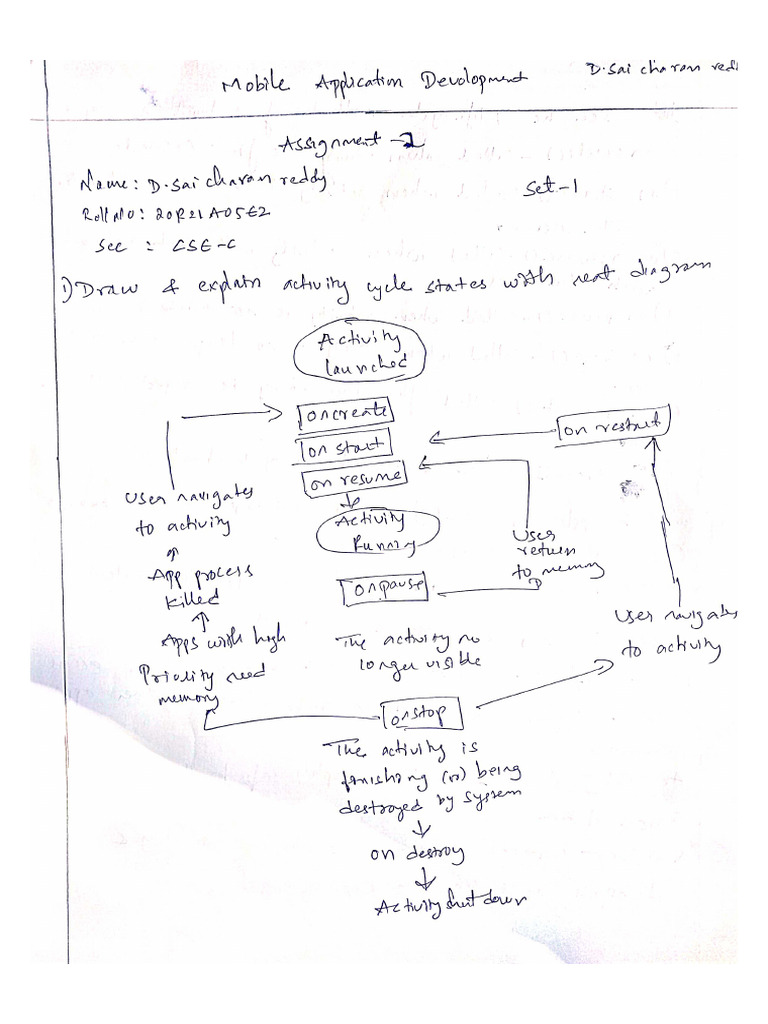 Mobile Application Devolopment
D.Sai charan redd
Assignment - 2
Name: D.Sai charan reddy
Set-1
Roll NO: 20R21A05E2
Sec : CSE-C
1) Draw & explain activity cycle states with neat diagram
Activity
launched
oncreate
on start
on resume
on restart
User navigates
to activity
Activity
Running
User
return
to memory
App process
killed
onpause
Apps with high
Priority need
memory
The activity no
longer visible
User navigates
to activity
onstop
The activity is
finishing (or) being
destroyed by system
on destroy
Activity shut down